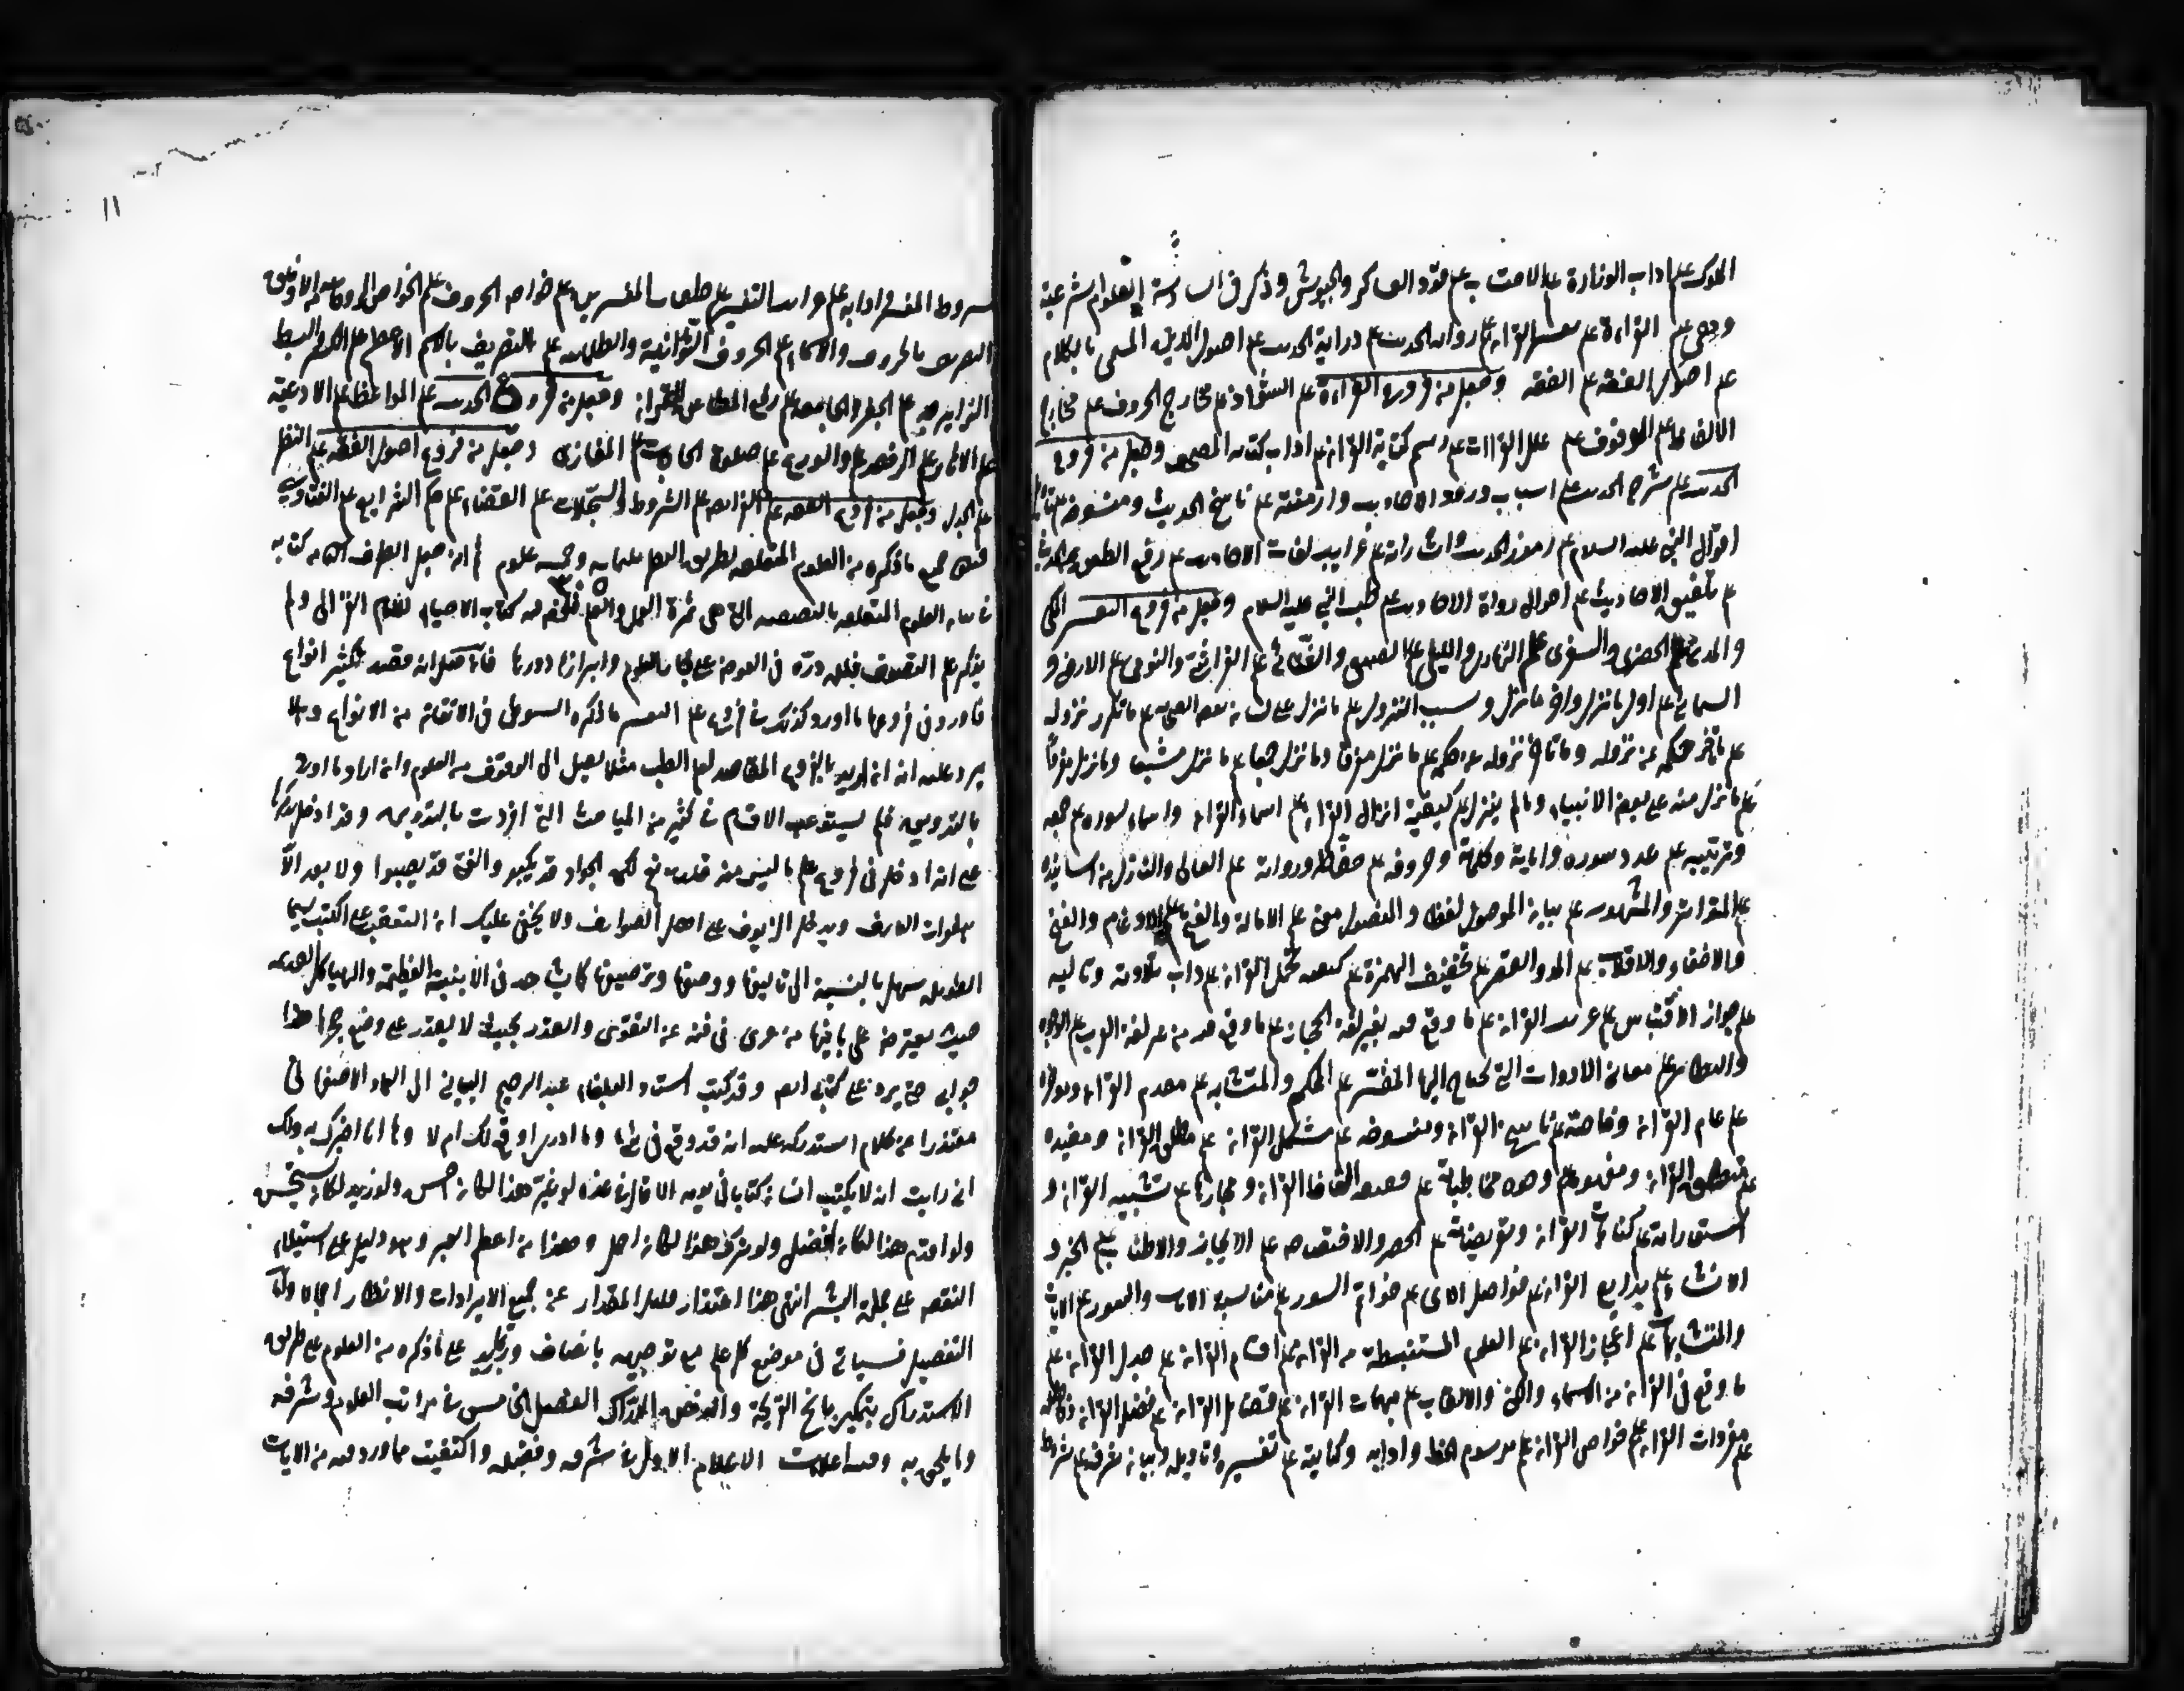 الملوك علم اداب الوزارة علم الاحتساب علم قود العساكر والجيوش وذكر في السادسة العلوم الشرعية
وهي علم القراءة علم تفسير القران علم رواية الحديث علم دراية الحديث علم اصول الدين المسمى بالكلام
علم اصول الفقه علم الفقه وجعل من فروع القراءة علم الشواذ علم مخارج الحروف علم مخارج
الالفاظ علم الوقوف علم علل القراات علم رسم كتابة القران علم اداب كتابة المصحف وجعل من فروع
الحديث علم شرح الحديث علم اسباب ورود الاحاديث وازمنته علم ناسخ الحديث ومنسوخه علم تاويل
اقوال النبي عليه السلام علم رموز الحديث واشاراته علم غرايب لغات الاحاديث علم دفع الطعن عن الحديث
علم تلفيق الاحاديث علم احوال رواة الاحاديث علم طب النبي عليه السلام وجعل من فروع التفسير المكي
والمدني علم الحضري والسفري علم النهاري والليلي علم الصيفي والشتائي علم الفراشي والنومي علم الارضي و
السمائي علم اول ما نزل واخر ما نزل وسبب النزول علم ما نزل على لسان بعض الصحابة علم ما تكرر نزوله
علم ما تاخر حكمه عن نزوله وما تاخر نزوله عن حكمه علم ما نزل مفرقا وما نزل جمعا علم ما نزل مشيعا وما نزل مفردا
علم ما نزل منه على بعض الانبياء وما لم ينزل علم كيفية انزال القران علم اسماء القران واسماء سوره علم جمعه
وترتيبه علم عدد سوره واياته وكلماته وحروفه علم حفاظه ورواته علم العالي والنازل من اسانيده
علم المتواتر والمشهور علم بيان الموصول لفظا والمفصول معنى علم الامالة والفتح علم الادغام والفتح
والاخفاء والاقلاب علم المد والقصر علم تخفيف الهمزة علم كيفية تحمل القران علم اداب تلاوته وتاليه
علم جواز الاقتباس علم غريب القران علم ما وقع فيه بغير لغة الحجاز علم ما وقع فيه من غير لغة العرب علم الوجوه
والنظائر علم معاني الادوات التي يحتاج اليها المفسر علم المحكم والمتشابه علم مقدم القران ومؤخره
علم عام القران وخاصه علم ناسخ القران ومنسوخه علم مشكل القران علم مطلق القران ومقيده
علم منطوق القران ومفهومه علم وجوه مخاطباته علم حقيقة الفاظ القران ومجازها علم تشبيه القران و
استعاراته علم كنايات القران وتعريضاته علم الحصر والاختصاص علم الايجاز والاطناب علم الخبر و
الانشاء علم بدايع القران علم فواصل الاي علم خواتم السور علم مناسبة الايات والسور علم الايات
والمتشابهات علم اعجاز القران علم العلوم المستنبطة من القران علم اقسام القران علم جدل القران علم
ما وقع في القران من الاسماء والكنى والالقاب علم مبهمات القران علم فضائل القران علم افضل القران وفاضله
علم مفردات القران علم خواص القران علم مرسوم الخط وادابه وكتابته علم تفسيره وتاويله وبيان شرفه علم شروط
١١
شروط المفسر وادابه علم غرايب التفسير علم طبقات المفسرين علم خواص الحروف علم الخواص الروحانية من الاوفاق
التصريف بالحروف والاسماء علم الحروف النورانية والظلمانية علم التصريف بالاسم الاعظم علم الكسر والبسط
الزايرجة علم الجفر والجامعة علم دفع المطاعن القران وجعل من فروع الحديث علم المواعظ علم الادعية
علم الاثار علم الزهد والورع علم صلوة الحاجات علم المغازي وجعل من فروع اصول الفقه علم النظر
علم الجدل وجعل من فروع الفقه علم الفرائض علم الشروط والسجلات علم القضاء علم حكم الشرايع علم الفتاوى
فهذا جميع ما ذكره من العلوم المتعلقة بطريق النظر ثلثمائة وخمسة علوم ثم انه جعل الطرف الثاني من كتابه
في بيان العلوم المتعلقة بالتصفية التي هي ثمرة العمل والعلم فلخص فيه كتاب الاحياء للامام الغزالي ولم
يذكر علم التصوف فلله دره في الغوص على بحار العلوم وابراز دررها فان قيل انه قصد تكثير انواع
فاورد في فروعها ما اورد كذلك في فروع علم التفسير ما ذكره السيوطي في الاتقان من الانواع
يرد عليه انه ان اريد بالفروع المقاصد لعلم الطب مثلا يصل الى الوقوف من العلوم وان اراد ما افرد
بالتدوين فلم يستوعب الاقسام في كثير من المباحث التي افردت بالتدوين وقد ادخل بذكره
على انه ادخل في فروع علم ما ليس منه قلت نعم لكن الجواد قد يكبو والفتى قد يصبو ولا يعد الا
هفوات العارف ويدخل الزيوف على اهل الصيارف ولا يخفى عليك ان التعقب على الكتب سيما
الطويلة سهل بالنسبة الى تاليفها ووضعها وترصيفها كما يشاهد في الابنية العظيمة والهياكل القديمة
حيث يعترض على بانيها من عري في فنه عن القوى والقدر بحيث لا يقدر على وضع حجر هذا
جوابي عما يرد على كتابي ايضا وقد كتب استاد البلغاء عبد الرحيم البيساني الى العماد الاصفهاني
معتذرا عن كلام استدركه عليه انه قد وقع لي شيء وما ادري اوقع لك ام لا وها انا اخبرك به وذلك
اني رايت انه لا يكتب انسان كتابا في يومه الا قال في غده لو غير هذا لكان احسن ولو زيد لكان يستحسن
ولو قدم هذا لكان افضل ولو ترك هذا لكان اجمل وهذا من اعظم العبر وهو دليل على استيلاء
النقص على جملة البشر انتهى هذا اعتذار قليل المقدار عن جميع الايرادات والانظار اجمالا واما
التفصيل فسياتي في موضع كل علم مع توجيهه بانصاف وزيادة على ما ذكره من العلوم على طريق
الاستدراك بتمكين مانح القريحة والذهن الدراك الفصل الخامس في مراتب العلوم وشرفه
وما يلحق به وفيه اعلامات الاعلام الاول في شرفه وفضله واكتفيت مما ورد فيه من الايات